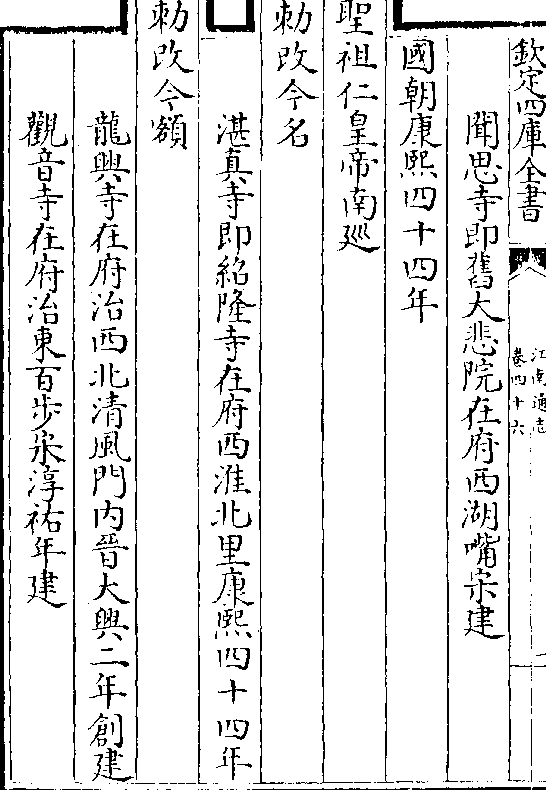 欽定四庫全書
江南通志
卷四十六
聞思寺即舊大悲院在府西湖嘴宋建
國朝康熙四十四年
聖祖仁皇帝南廵
勅改今名
湛真寺即紹隆寺在府西淮北里康熙四十四年
勅改今額
龍興寺在府治西北清風門内晉大興二年創建
觀音寺在府治東百步宋淳祐年建